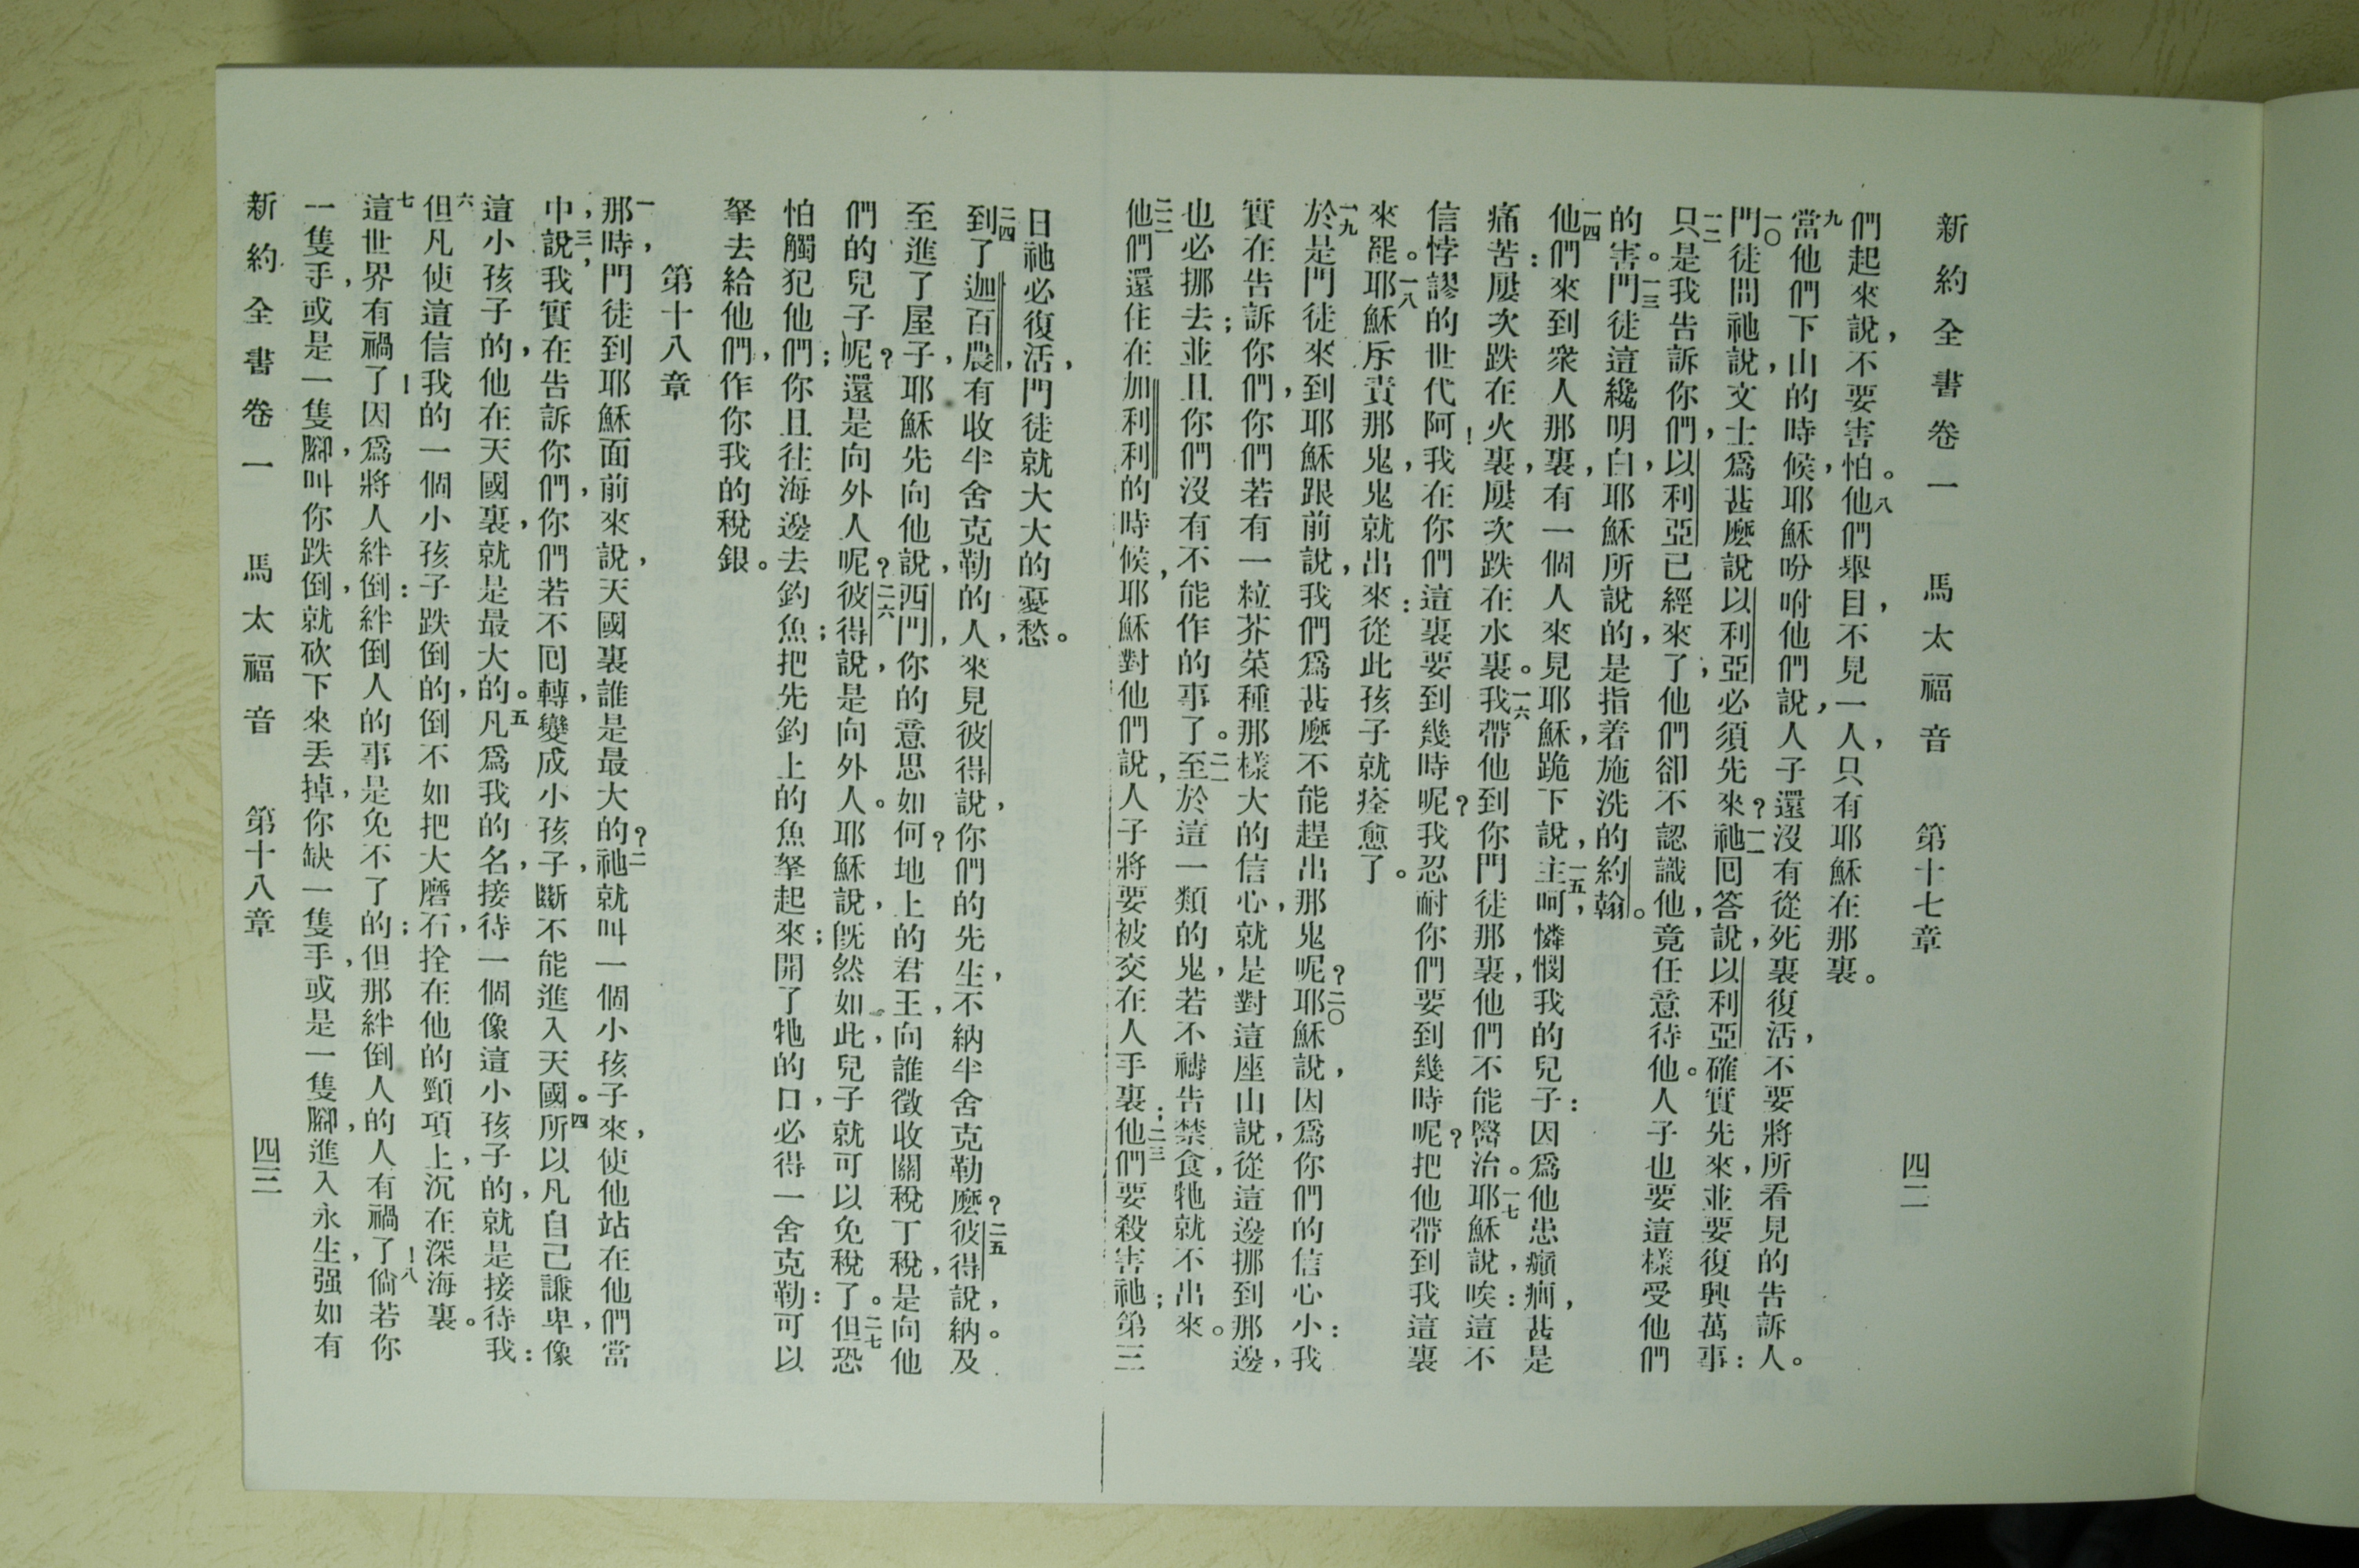 新約全書卷一　馬太福音　第十七章　四二
們起來說，不要害怕。八他們舉目，不見一人，只有耶穌在那裏。
九當他們下山的時候，耶穌吩咐他們說，人子還沒有從死裏復活，不要將所看見的告訴人。
一〇門徒問祂說，文士爲甚麼說以利亞必須先來？一一祂囘答說，以利亞確實先來，並要復興萬事：
一二只是我告訴你們，以利亞已經來了；他們卻不認識他，竟任意待他。人子也要這樣受他們
的害。一三門徒這纔明白，耶穌所說的，是指着施洗的約翰。
一四他們來到衆人那裏，有一個人來見耶穌，跪下說，一五主呵，憐憫我的兒子：因爲他患癲癇，甚是
痛苦：屢次跌在火裏，屢次跌在水裏。一六我帶他到你門徒那裏，他們不能醫治。一七耶穌說，唉：這不
信悖謬的世代阿！我在你們這裏要到幾時呢？我忍耐你們要到幾時呢？把他帶到我這裏
來罷。一八耶穌斥責那鬼，鬼就出來：從此孩子就痊愈了。
一九於是門徒來到耶穌跟前說，我們爲甚麼不能趕出那鬼呢？二〇耶穌說，因爲你們的信心小：我
實在告訴你們，你們若有一粒芥菜種那樣大的信心，就是對這座山說，從這邊挪到那邊，
也必挪去；並且你們沒有不能作的事了。二一至於這一類的鬼，若不禱告禁食，牠就不出來。
二二他們還住在加利利的時候，耶穌對他們說，人子將要被交在人手裏；二三他們要殺害祂；第三
日祂必復活，門徒就大大的憂愁。
二四到了迦百農，有收半舍克勒的人，來見彼得說，你們的先生，不納半舍克勒麼？二五彼得說，納。及
至進了屋子，耶穌先向他說，西門，你的意思如何？地上的君王，向誰徵收關稅丁稅，是向他
們的兒子呢？還是向外人呢？二六彼得說，是向外人。耶穌說，旣然如此，兒子就可以免稅了。二七但恐
怕觸犯他們；你且往海邊去釣魚；把先釣上的魚拏起來；開了牠的口，必得一舍克勒：可以
拏去給他們，作你我的稅銀。
第十八章
一那時，門徒到耶穌面前來說，天國裏誰是最大的？二祂就叫一個小孩子來，使他站在他們當
中，三說，我實在告訴你們，你們若不囘轉，變成小孩子，斷不能進入天國。四所以凡自己謙卑，像
這小孩子的，他在天國裏，就是最大的。五凡爲我的名，接待一個像這小孩子的，就是接待我：
六但凡使這信我的一個小孩子跌倒的，倒不如把大磨石，拴在他的頸項上，沉在深海裏。
七這世界有禍了！因爲將人絆倒：絆倒人的事，是免不了的；但那絆倒人的人有禍了！八倘若你
一隻手，或是一隻腳，叫你跌倒，就砍下來丟掉，你缺一隻手，或是一隻腳，進入永生，强如有
新約全書卷一　馬太福音　第十八章　四三